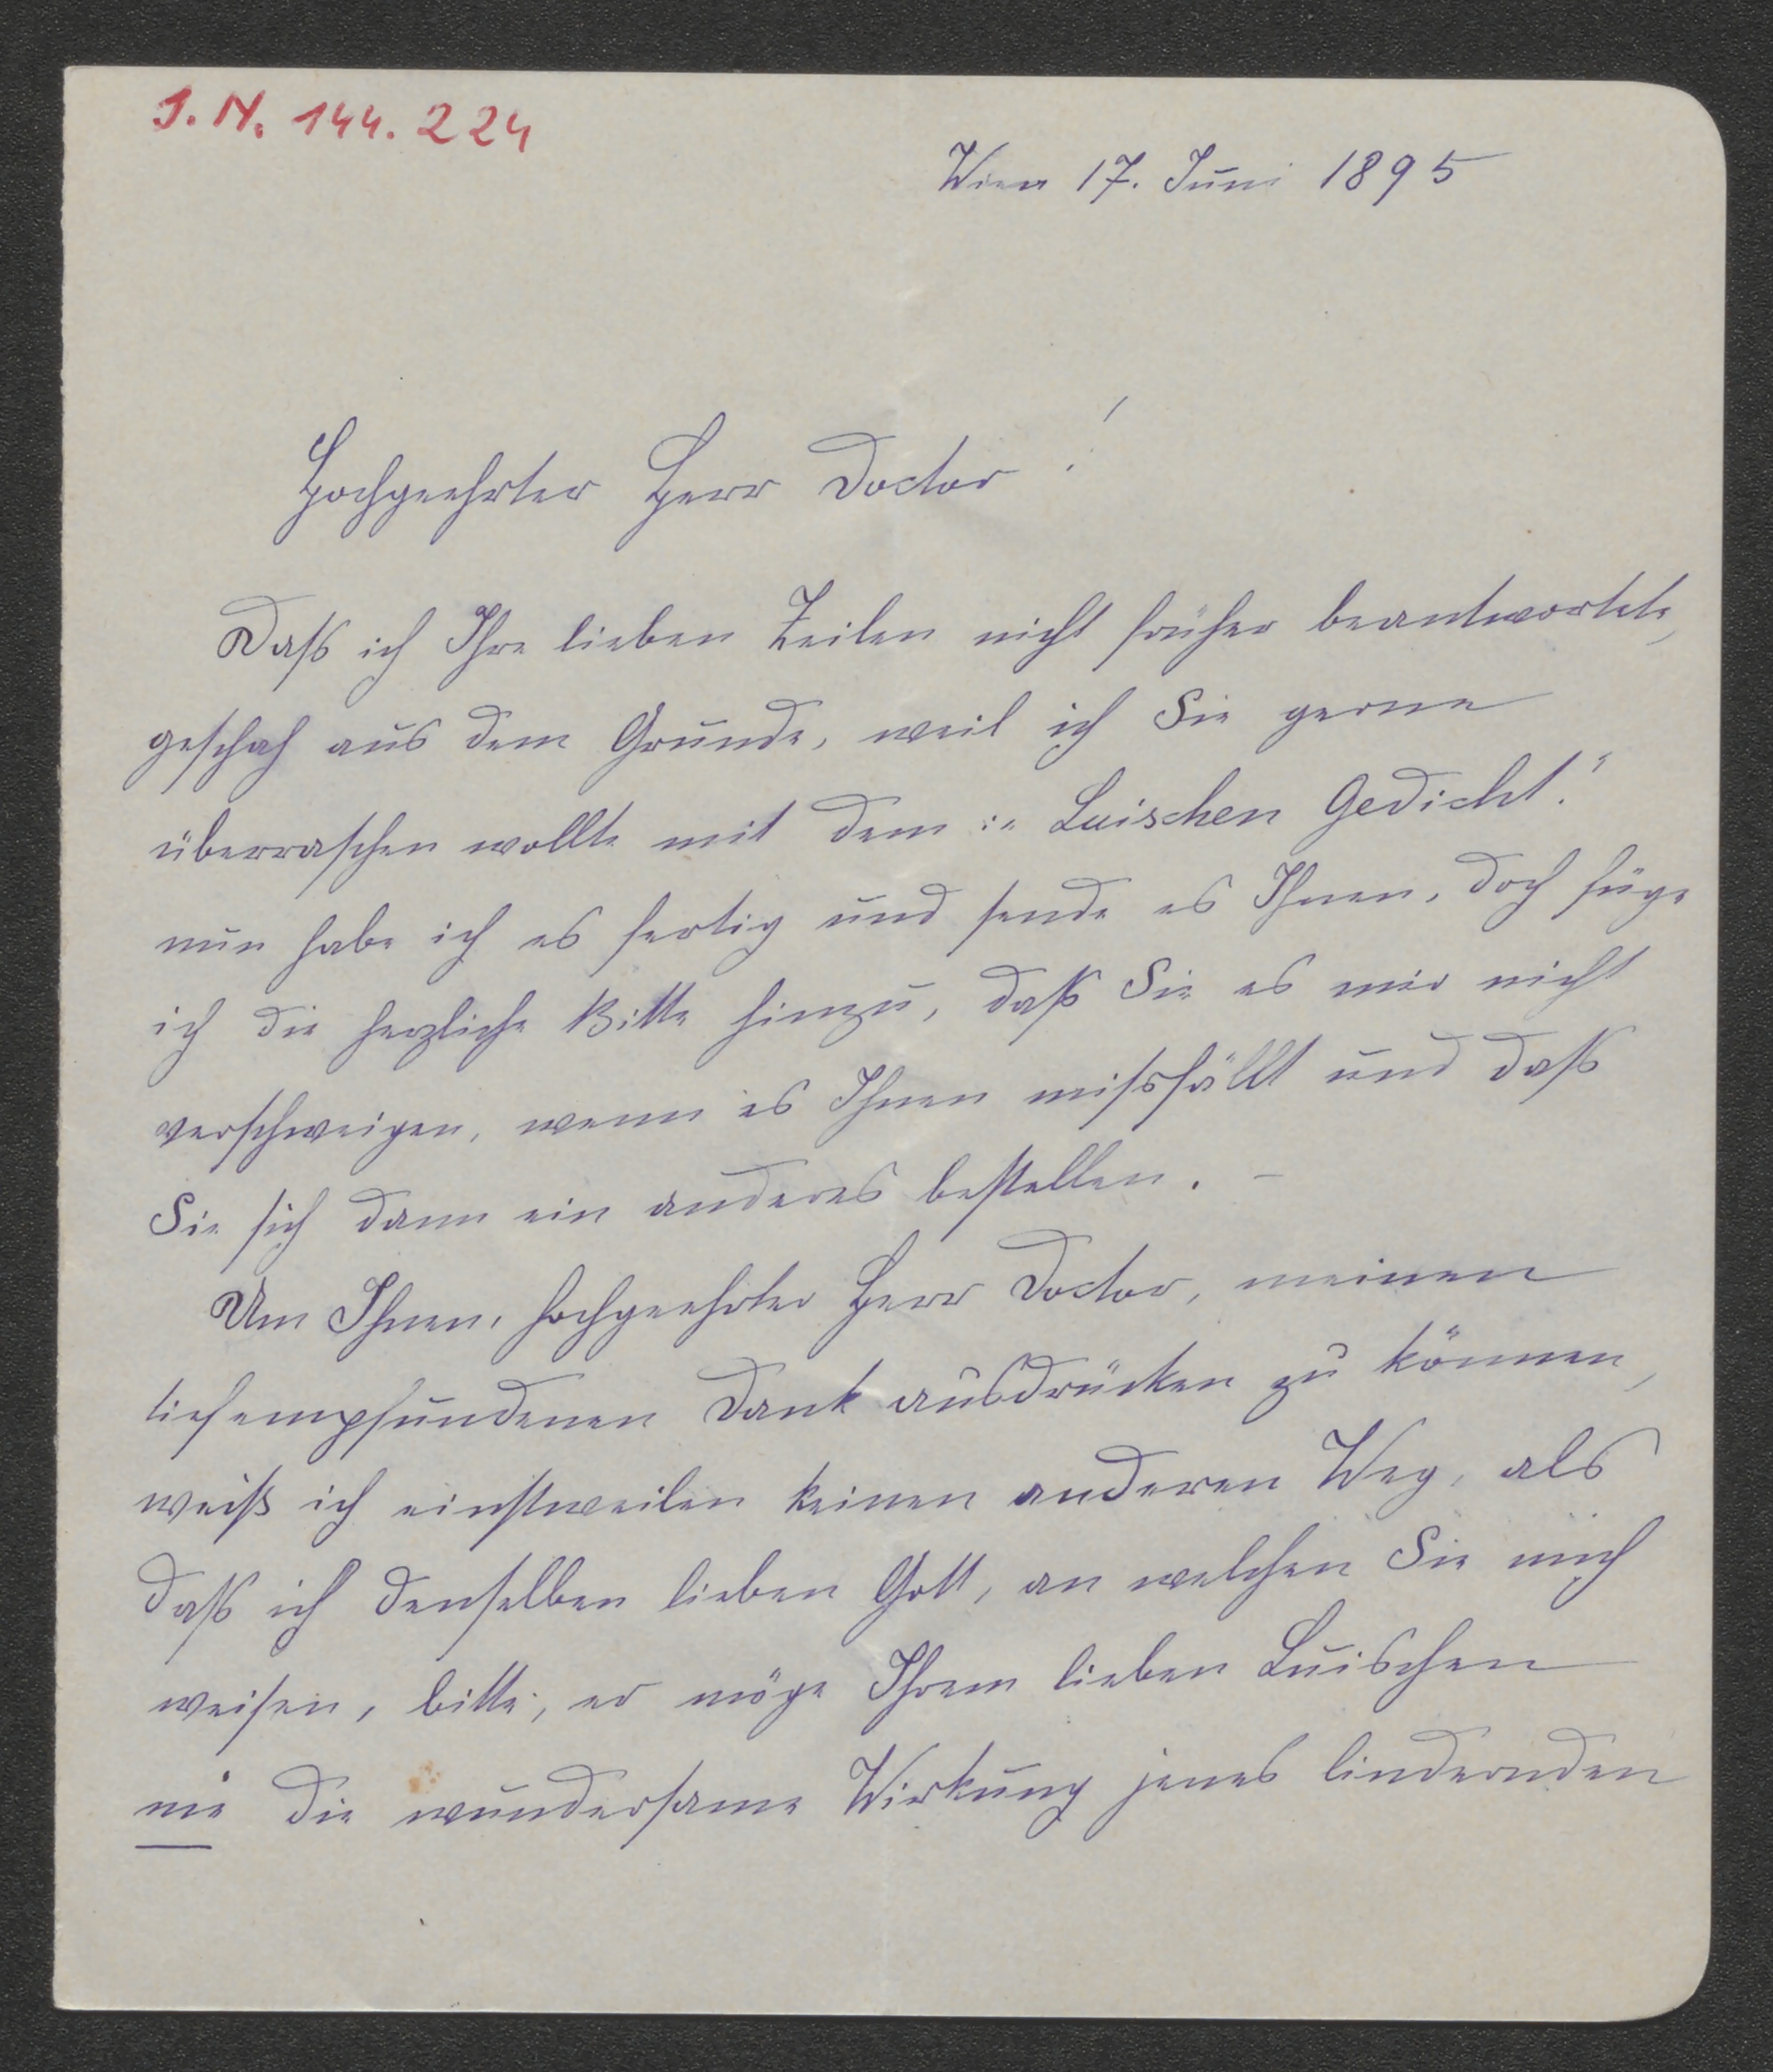 J. N. 144.224
Wien 17. Juni 1895
Hochgeehrter Herr Doctor!
Daß ich Ihre lieben Zeilen nicht früher beantwortete,
geschah aus dem Grunde, weil ich Sie gerne
überraschen wollte mit dem: „Luischen Gedicht."
nun habe ich es fertig und sende es Ihnen, doch füge
ich die herzliche Bitte hinzu, daß Sie es mir nicht
verschweigen, wenn es Ihnen missfällt und daß
Sie sich dann ein anderes bestellen. –
Um Ihnen, hochgeehrter Herr Doctor, meinen
tiefempfundenen Dank ausdrücken zu können,
weiß ich einstweilen keinen anderen Weg, als
daß ich denselben lieben Gott, an welchen Sie mich
weisen, bitte, er möge Ihrem lieben Luischen
nie die wundersame Wirkung jenes lindernden